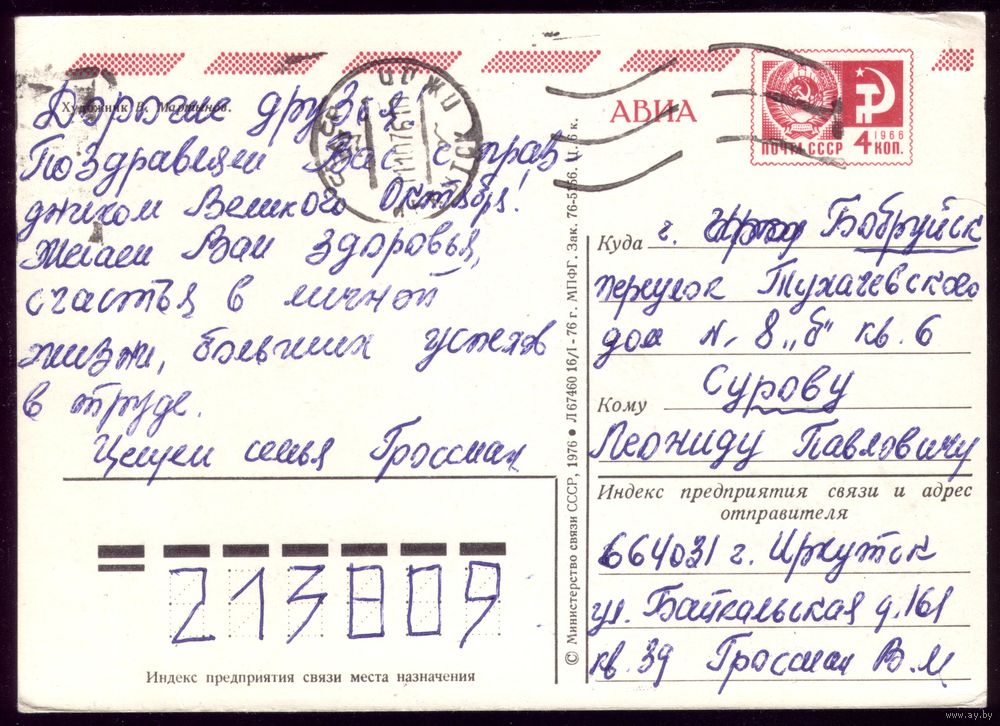 Художник В. Мартынов.
Дорогие друзья!
Поздравляем Вас с праз
дником Великого Октября!
Желаем Вам здоровья,
счастья в личной
жизни, больших успехов
в труде.
Целуем семья Гроссман
213809
Индекс предприятия связи места назначения
© Министерство связи СССР, 1976 • Л 67460 16/I-76 г. МПФГ. Зак. 76-5166. Ц. 6 к.
АВИА
1966
ПОЧТА СССР 4 КОП.
Куда г. Бобруйск
переулок Тухачевского
дом N, 8 „б" кв. 6
Сурову
Кому
Леониду Павловичу
Индекс предприятия связи и адрес
отправителя
664031 г. Иркутск
ул. Байкальская д. 161
кв. 39 Гроссман В. М
www.ay.by